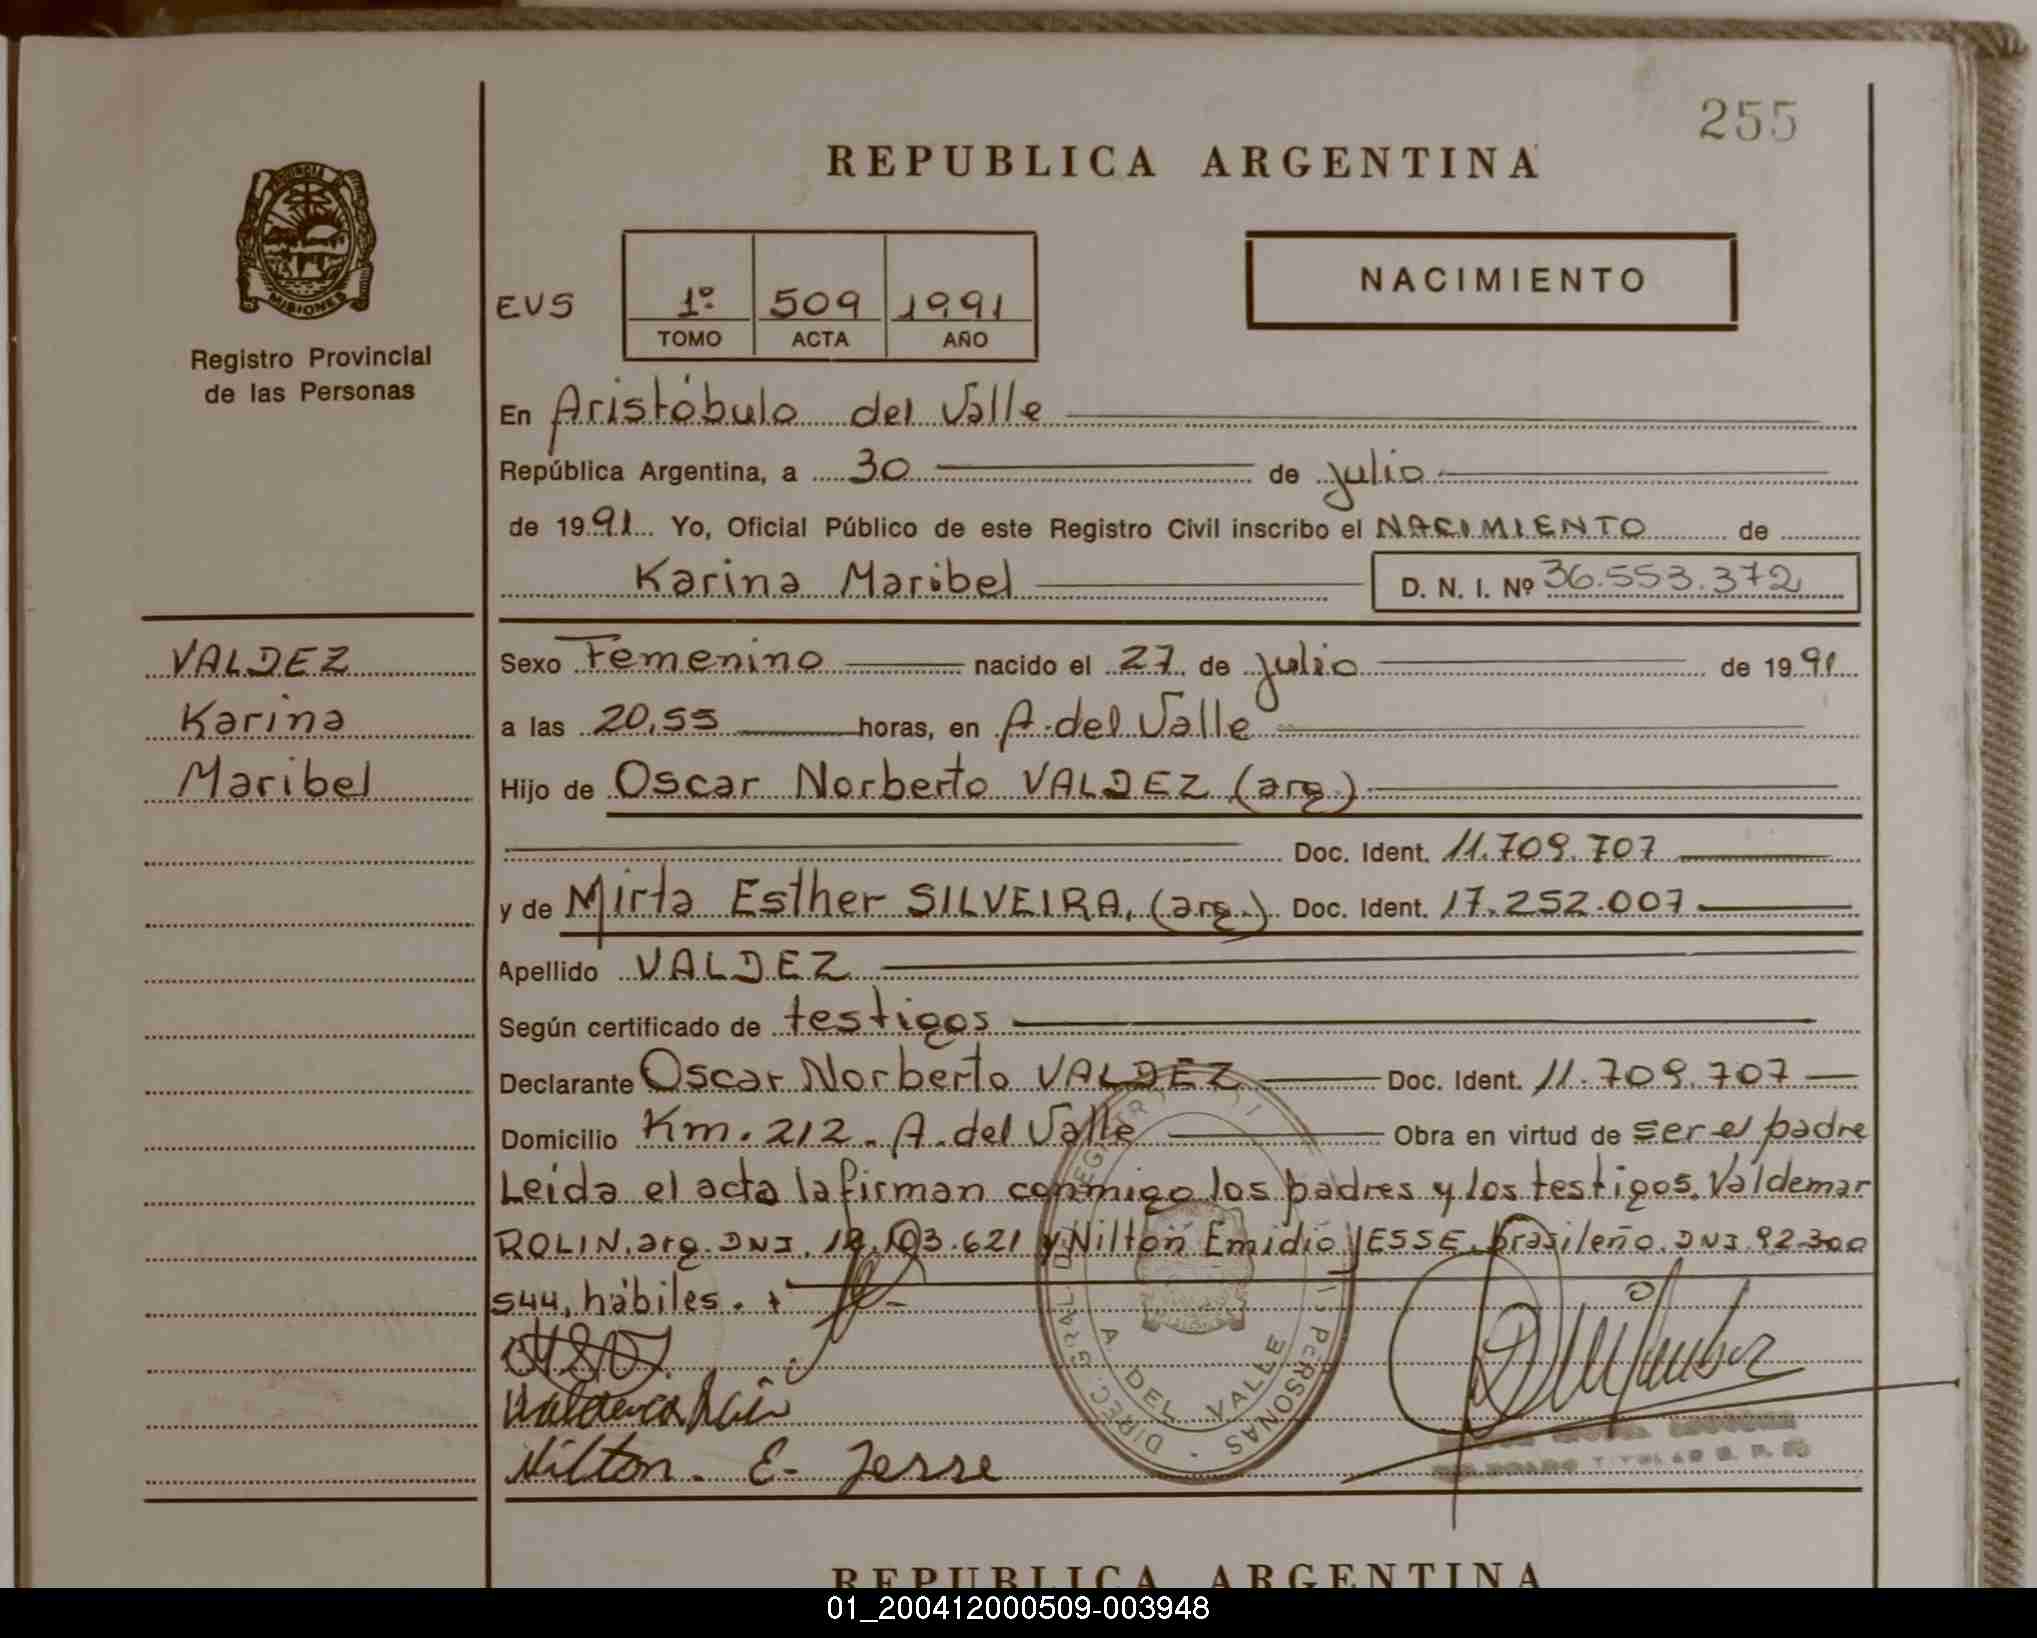 255
REPUBLICA ARGENTINA
PROVINCIA DE
MISIONES
Registro Provincial
de las Personas
EVS
1º 509 1991
TOMO ACTA AÑO
NACIMIENTO
En Aristóbulo del Valle
República Argentina, a 30 de julio
de 1991 Yo, Oficial Público de este Registro Civil inscribo el NACIMIENTO de
Karina Maribel D. N. I. Nº 36.553.372
VALDEZ
Karina
Maribel
Sexo Femenino nacido el 27 de julio de 1991
a las 20,55 horas, en A. del Valle
Hijo de Oscar Norberto VALDEZ (arg.)
Doc. Ident. 11.709.707
y de Mirta Esther SILVEIRA, (arg.) Doc. Ident. 17.252.007
Apellido VALDEZ
Según certificado de testigos
Declarante Oscar Norberto VALDEZ Doc. Ident. 11.709.707
Domicilio Km. 212. A. del Valle Obra en virtud de ser el padre
Leída el acta la firman conmigo los padres y los testigos. Valdemar
ROLIN. arg. DNI. y Nilton Emidio JESSE. brasileño. DNI. 92.300
544, hábiles.
Nilton. E. Jesse
DIREC. GRAL. DEL REGISTRO PERSONAS
A DEL VALLE
REPUBLICA ARGENTINA
01_200412000509-003948